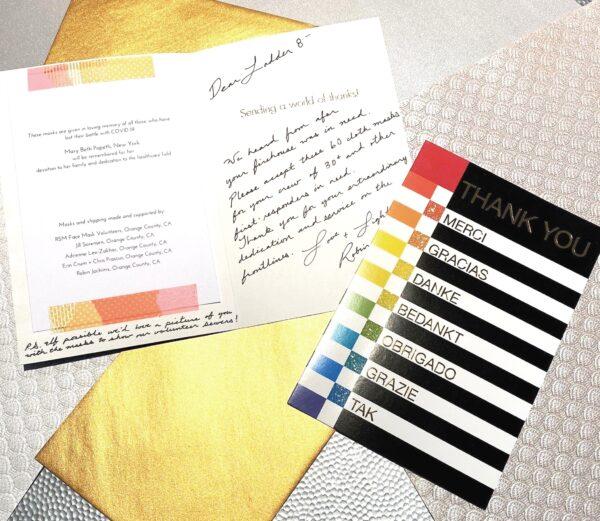 These masks are given in loving memory of all those who have
lost their battle with COVID-19.
Mary Beth Papetti, New York
will be remembered for her
devotion to her family and dedication to the healthcare field.
Masks and shipping made and supported by
RSM Face Mask Volunteers, Orange County, CA
Jill Sorensen, Orange County, CA
Adrienne Lev-Zakhar, Orange County, CA
Erin Crum + Chris Passon, Orange County, CA
Robin Jackins, Orange County, CA
P.S. If possible we'd love a picture of you
with the masks to show our volunteer sewers!
Dear Ladder 8-
Sending a world of thanks!
We heard from afar
your firehouse was in need.
Please accept these 60 cloth masks
for your crew of 30+ and other
first-responders in need.
Thank you for your extraordinary
dedication and service on the
frontlines. Love + Light
Robin
THANK YOU
MERCI
GRACIAS
DANKE
BEDANKT
OBRIGADO
GRAZIE
TAK